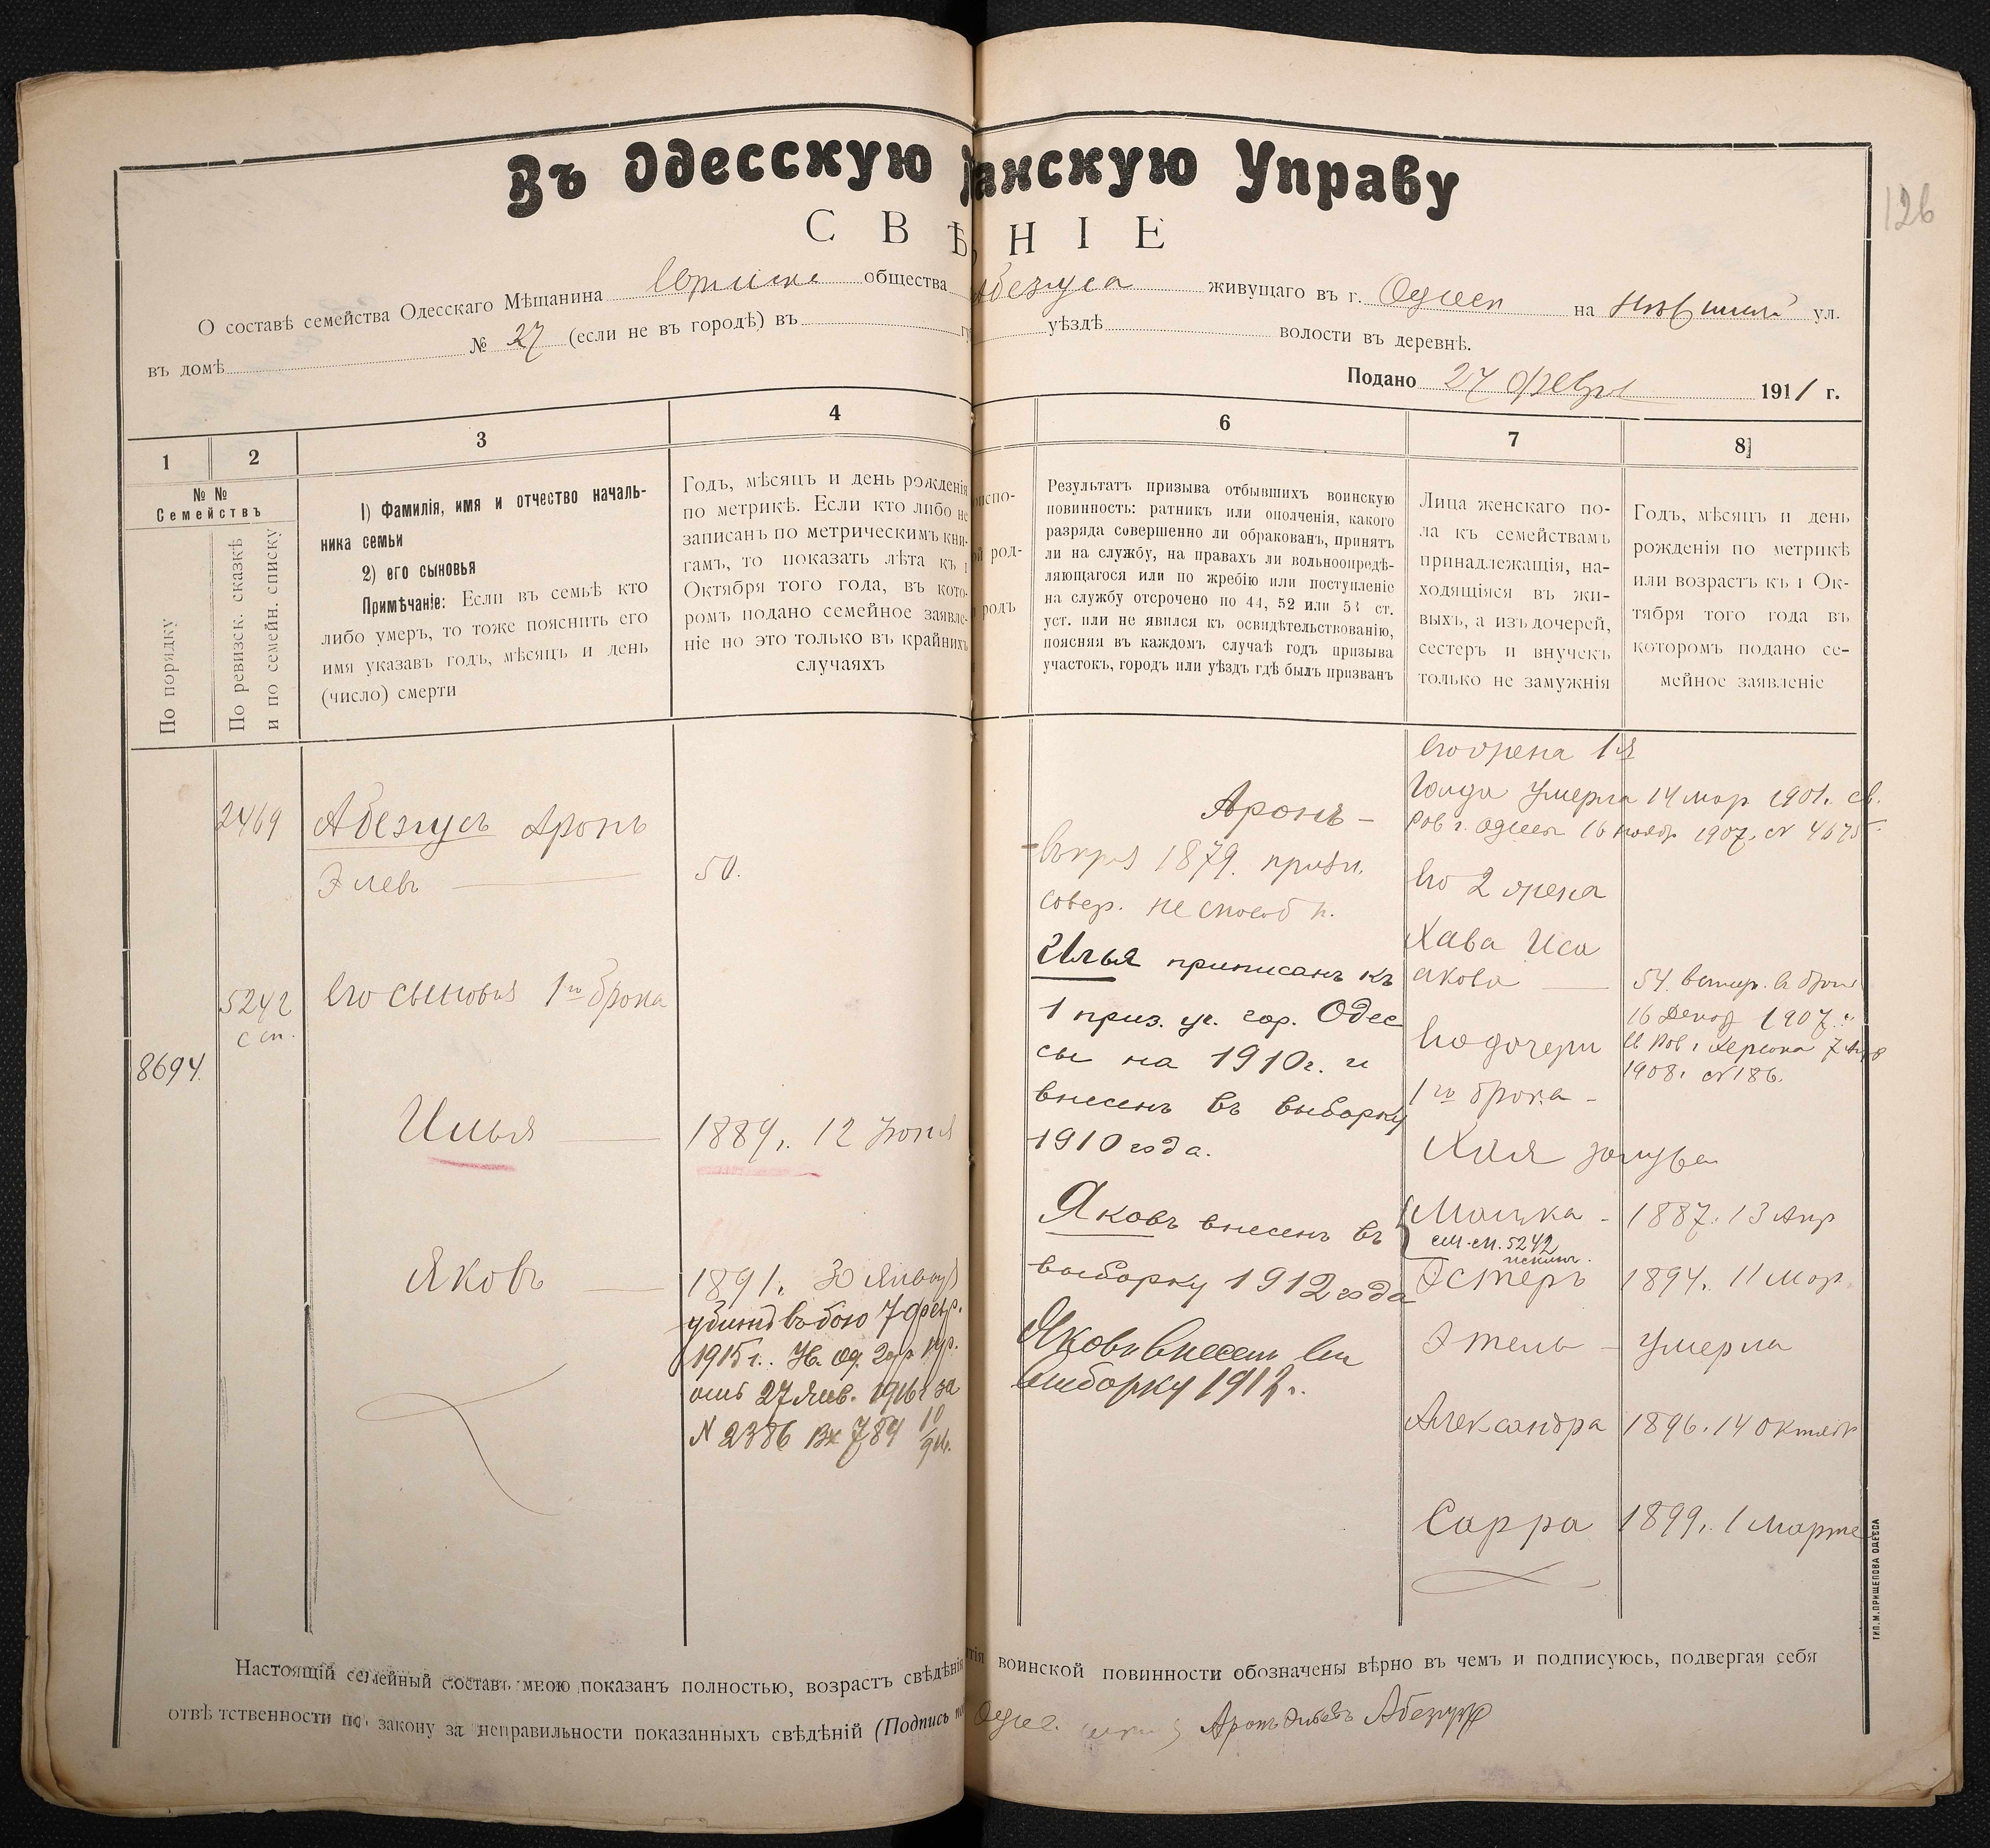 Въ Одесскую
анскую Управу
126
СВѢ
НІЕ
О составѣ семейства Одесскаго Мѣщанина общества
Абезуса живущаго въ г. Одессѣ на ул.
въ домѣ № 27 (если не въ городѣ) въ
уѣздѣ волости въ деревнѣ.
Подано 27 Февр 1911 г.
1
2
3
4
6
7
8
№ №
Семействъ
По порядку
По ревизск. сказкѣ
и по семейн. списку
1) Фамилія, имя и отчество началь-
ника семьи
2) его сыновья
Примѣчаніе: Если въ семьѣ кто
либо умеръ, то тоже пояснить его
имя указавъ годъ, мѣсяцъ и день
(число) смерти
Годъ, мѣсяцъ и день рожденія
по метрикѣ. Если кто либо не
записанъ по метрическимъ кни-
гамъ, то показать лѣта къ 1
Октября того года, въ кото-
ромъ подано семейное заявле-
ніе но это только въ крайнихъ
случаяхъ
испо-
ой род-
родъ
Результатъ призыва отбывшихъ воинскую
повинность: ратникъ или ополченія, какого
разряда совершенно ли обракованъ, принятъ
ли на службу, на правахъ ли вольноопредѣ-
ляющагося или по жребію или поступленіе
на службу отсрочено по 44, 52 или 53 ст.
уст. или не явился къ освидѣтельствованію,
поясняя въ каждомъ случаѣ годъ призыва
участокъ, городъ или уѣздъ гдѣ былъ призванъ
Лица женскаго по-
ла къ семействамъ
принадлежащія, на-
ходящіяся въ жи-
выхъ, а изъ дочерей,
сестеръ и внучекъ
только не замужнія
Годъ, мѣсяцъ и день
рожденія по метрикѣ
или возрастъ къ 1 Ок-
тября того года въ
которомъ подано се-
мейное заявленіе
8694.
2469
5242
с сп.
Абезусъ Аронъ
Элевъ
Его сыновья 1го брака
Илья
Яковъ
50.
1889. 12 Іюня
1891. 30 Января
убитъ въ бою 7 февр.
1915 г. Ув. Од. Гор. Упр.
отъ 27 Янв. 1916 г за
N 2386 Вх 789 10/916.
Аронъ -
1879. призн.
совер. не способн.
Илья приписанъ къ
1 приз. уч. гор. Одес
сы на 1910 г. и
внесенъ въ выборку
1910 года.
Яковъ внесенъ въ
выборку 1912 года
Яковъ внесенъ въ
выборку 1912 г.
Его жена 1я
Голда умерла 14 мар 1901. св.
Рав г. Одессы 16 нояб 1907. N 4675
Его 2 жена
Хава Иса
акова
54. вступ. въ бракъ
16 Декаб 1907.
св Рав г Херсона 7
1908. N 186.
Его дочери
1го брака -
Хая замужем
Малка - 1887. 13 Апр
см. сп. 5242
Эстеръ 1894. 11 Мар.
Этель - умерла
Александра 1896. 14 Октяб
Сарра 1899. 1 Марта
Настоящій семейный составъ мною показанъ полностью, возрастъ свѣдѣнія
воинской повинности обозначены вѣрно въ чемъ и подписуюсь, подвергая себя
отвѣтственности по закону за неправильности показанныхъ свѣдѣній (Подпись
Аронъ Элевъ Абезусъ
ТИП. М. ПРИЩЕПОВА ОДЕССА